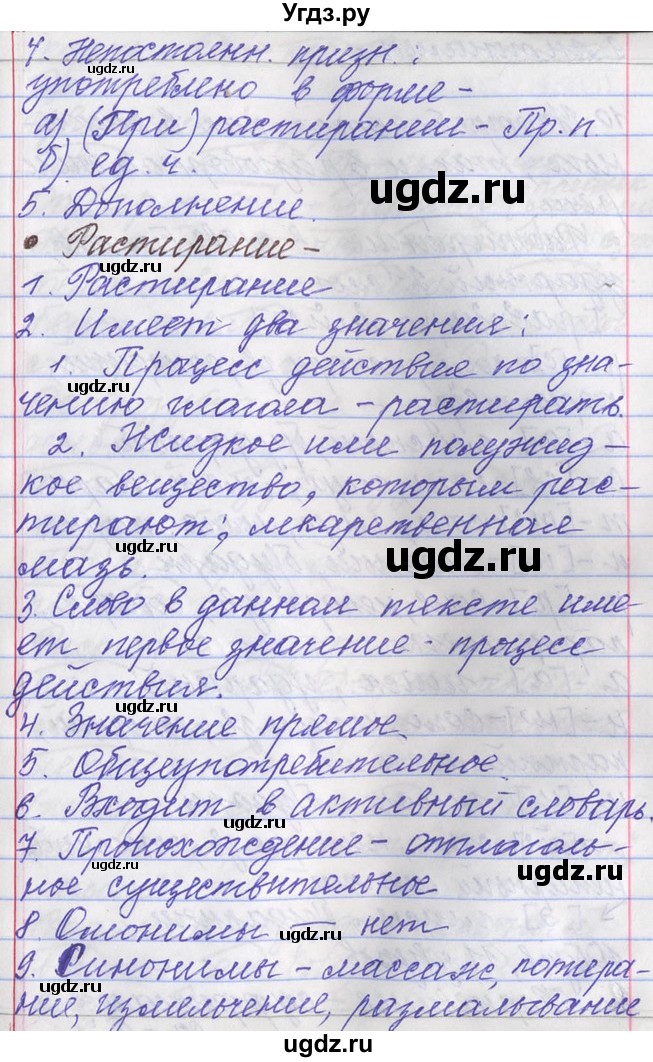 Угдз.ру
4. Непостоянн. призн.:
употреблено в форме -
а) (При) растирании - Пр. п
б) ед. ч.
5. Дополнение.
• Растирание -
1. Растирание
2. Имеет два значения:
1. Процесс действия по зна-
чению глагола - растирать.
2. Жидкое или полужид-
кое вещество, которым рас-
тирают; лекарственная
мазь.
3. Слово в данном тексте име-
ет первое значение - процесс
действия.
4. Значение прямое.
5. Общеупотребительное
6. Входит в активный словарь.
7. Происхождение - отглаголь-
ное существительное
8. Омонимы — нет
9. Синонимы - массаж, потира-
ние, измельчение, размалывание
ugdz.ru
ugdz.ru
ugdz.ru
ugdz.ru
ugdz.ru
ugdz.ru
ugdz.ru
ugdz.ru
ugdz.ru
ugdz.ru
ugdz.ru
ugdz.ru
ugdz.ru